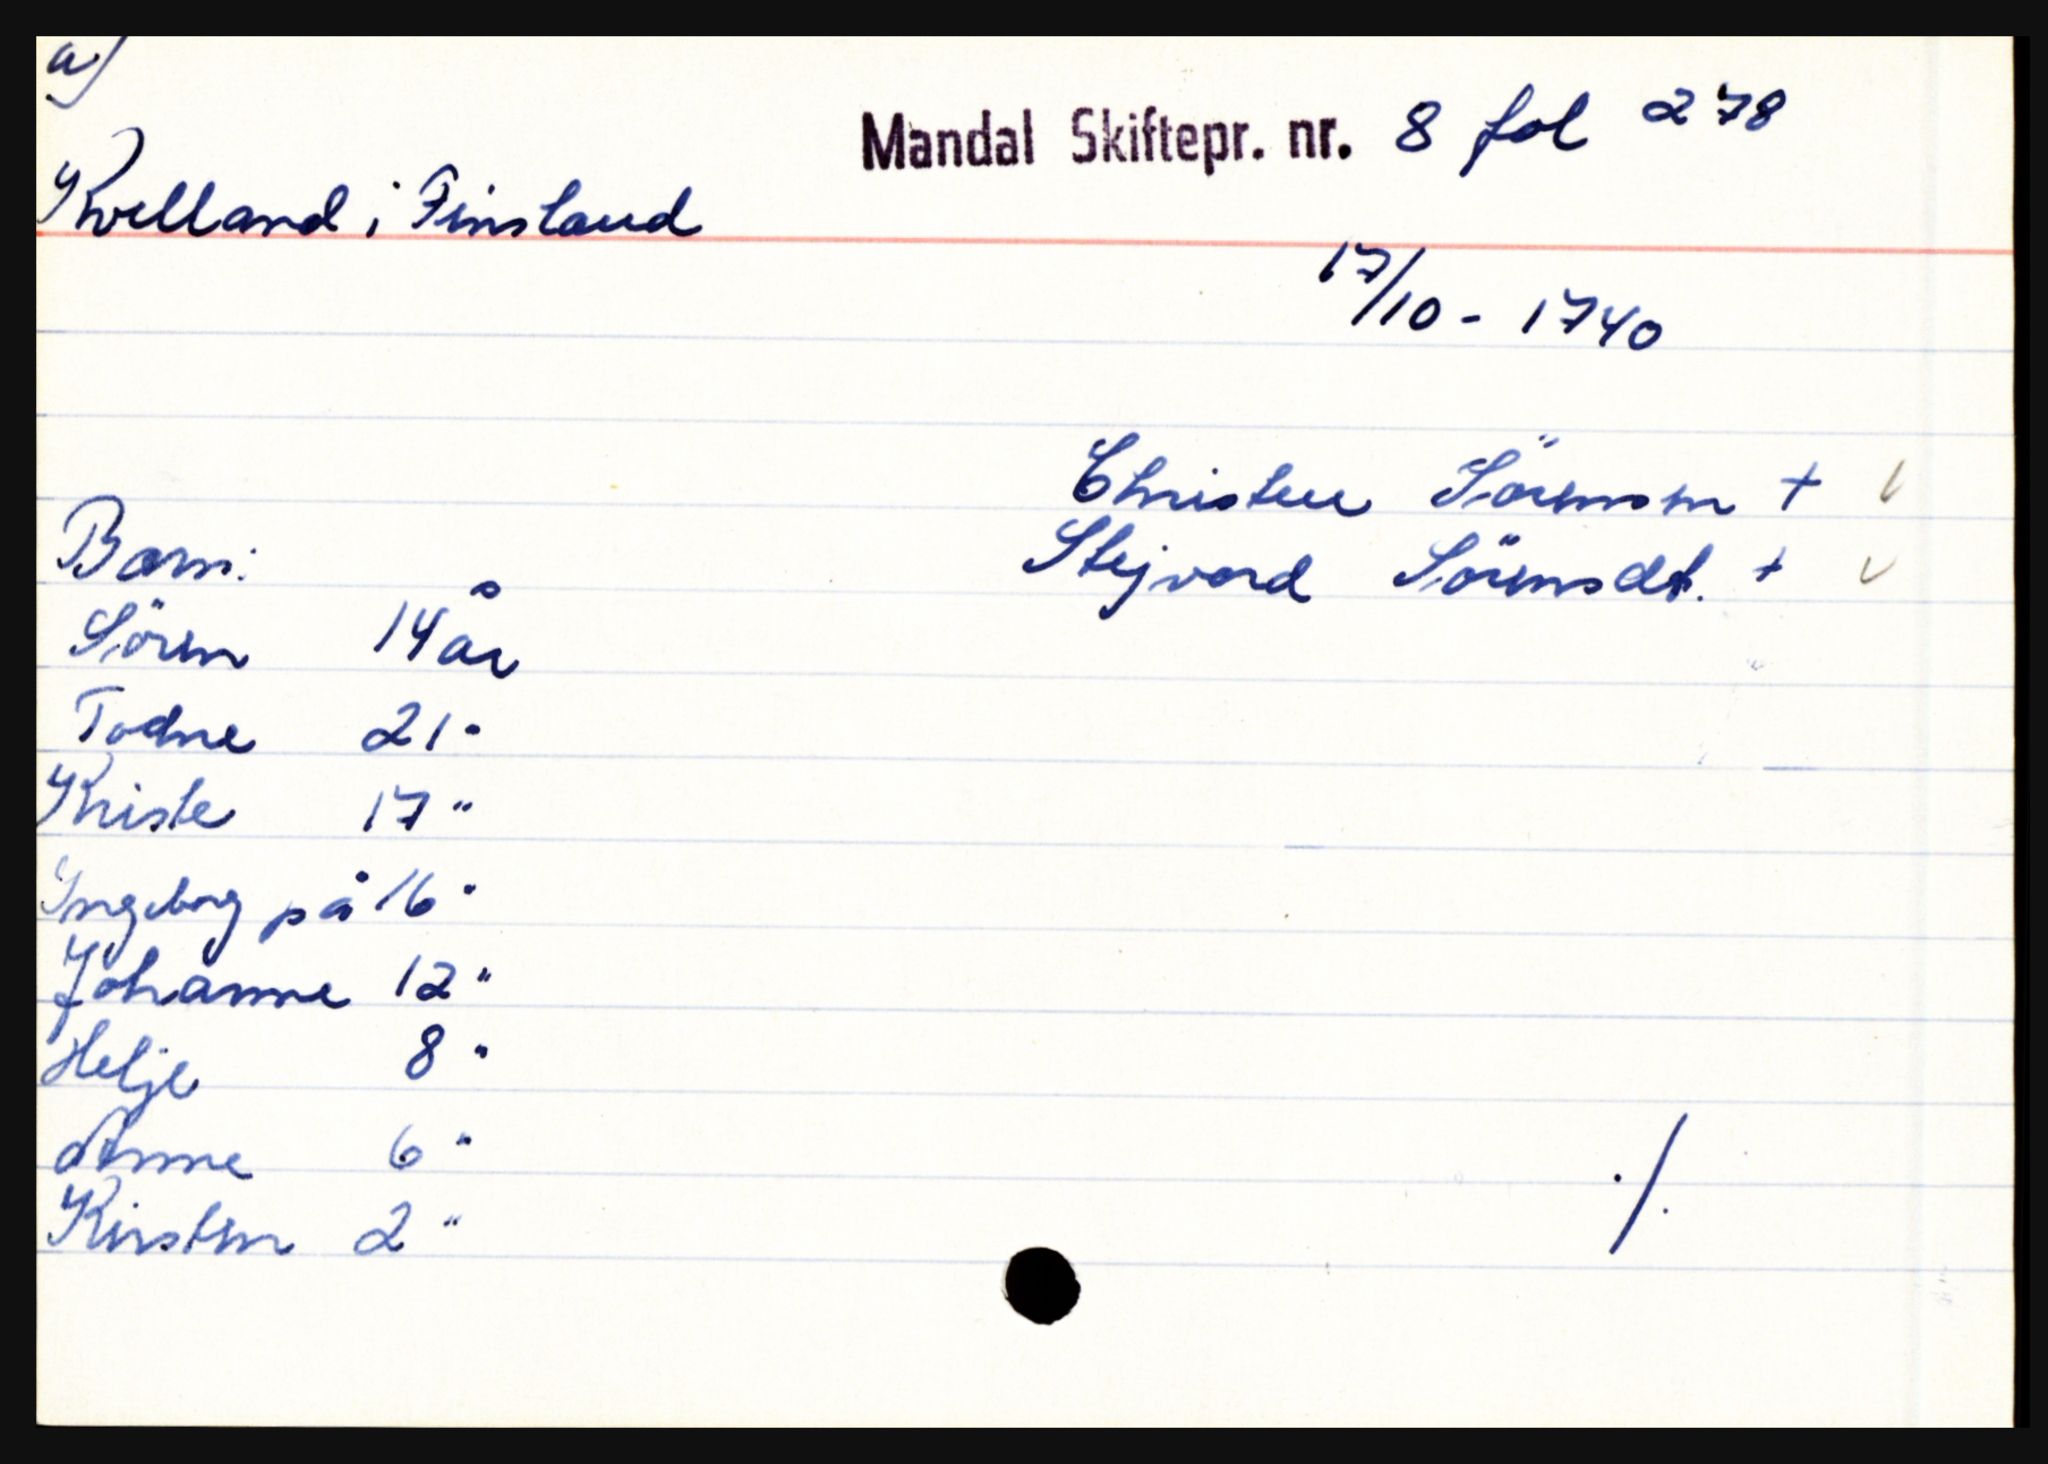 a)
Mandal Skiftepr. nr. 8 fol 278
Kvelland i Finsland
17/10 - 1740
Christen Sörensen + v
Stejvord Sörensdt. + v
Barn:
Sören 14 år
Todne 21 "
Kriste 17 "
Ingeborg på 16 "
Johanne 12 "
Helje 8 "
Anne 6 "
Kirsten 2 "
./.